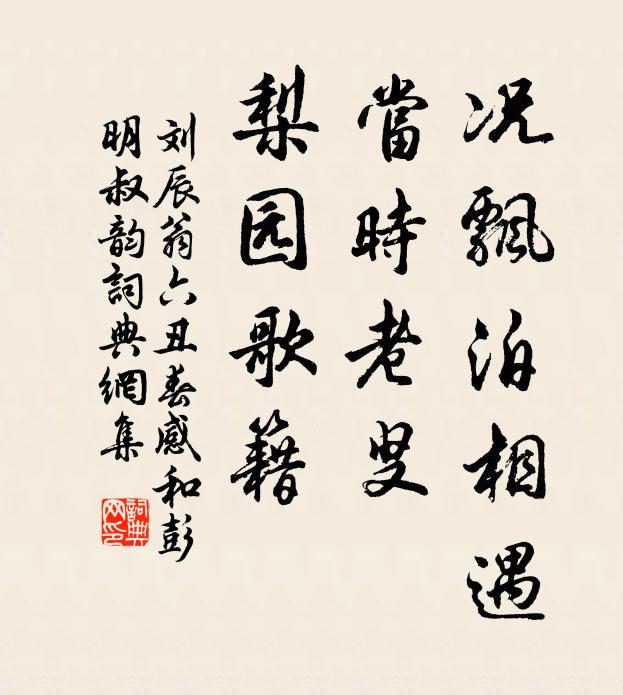 况飄泊相遇
當時老叟
梨园歌籍
刘辰翁六丑春感和彭
明叔韵詞典網集
詞典網印